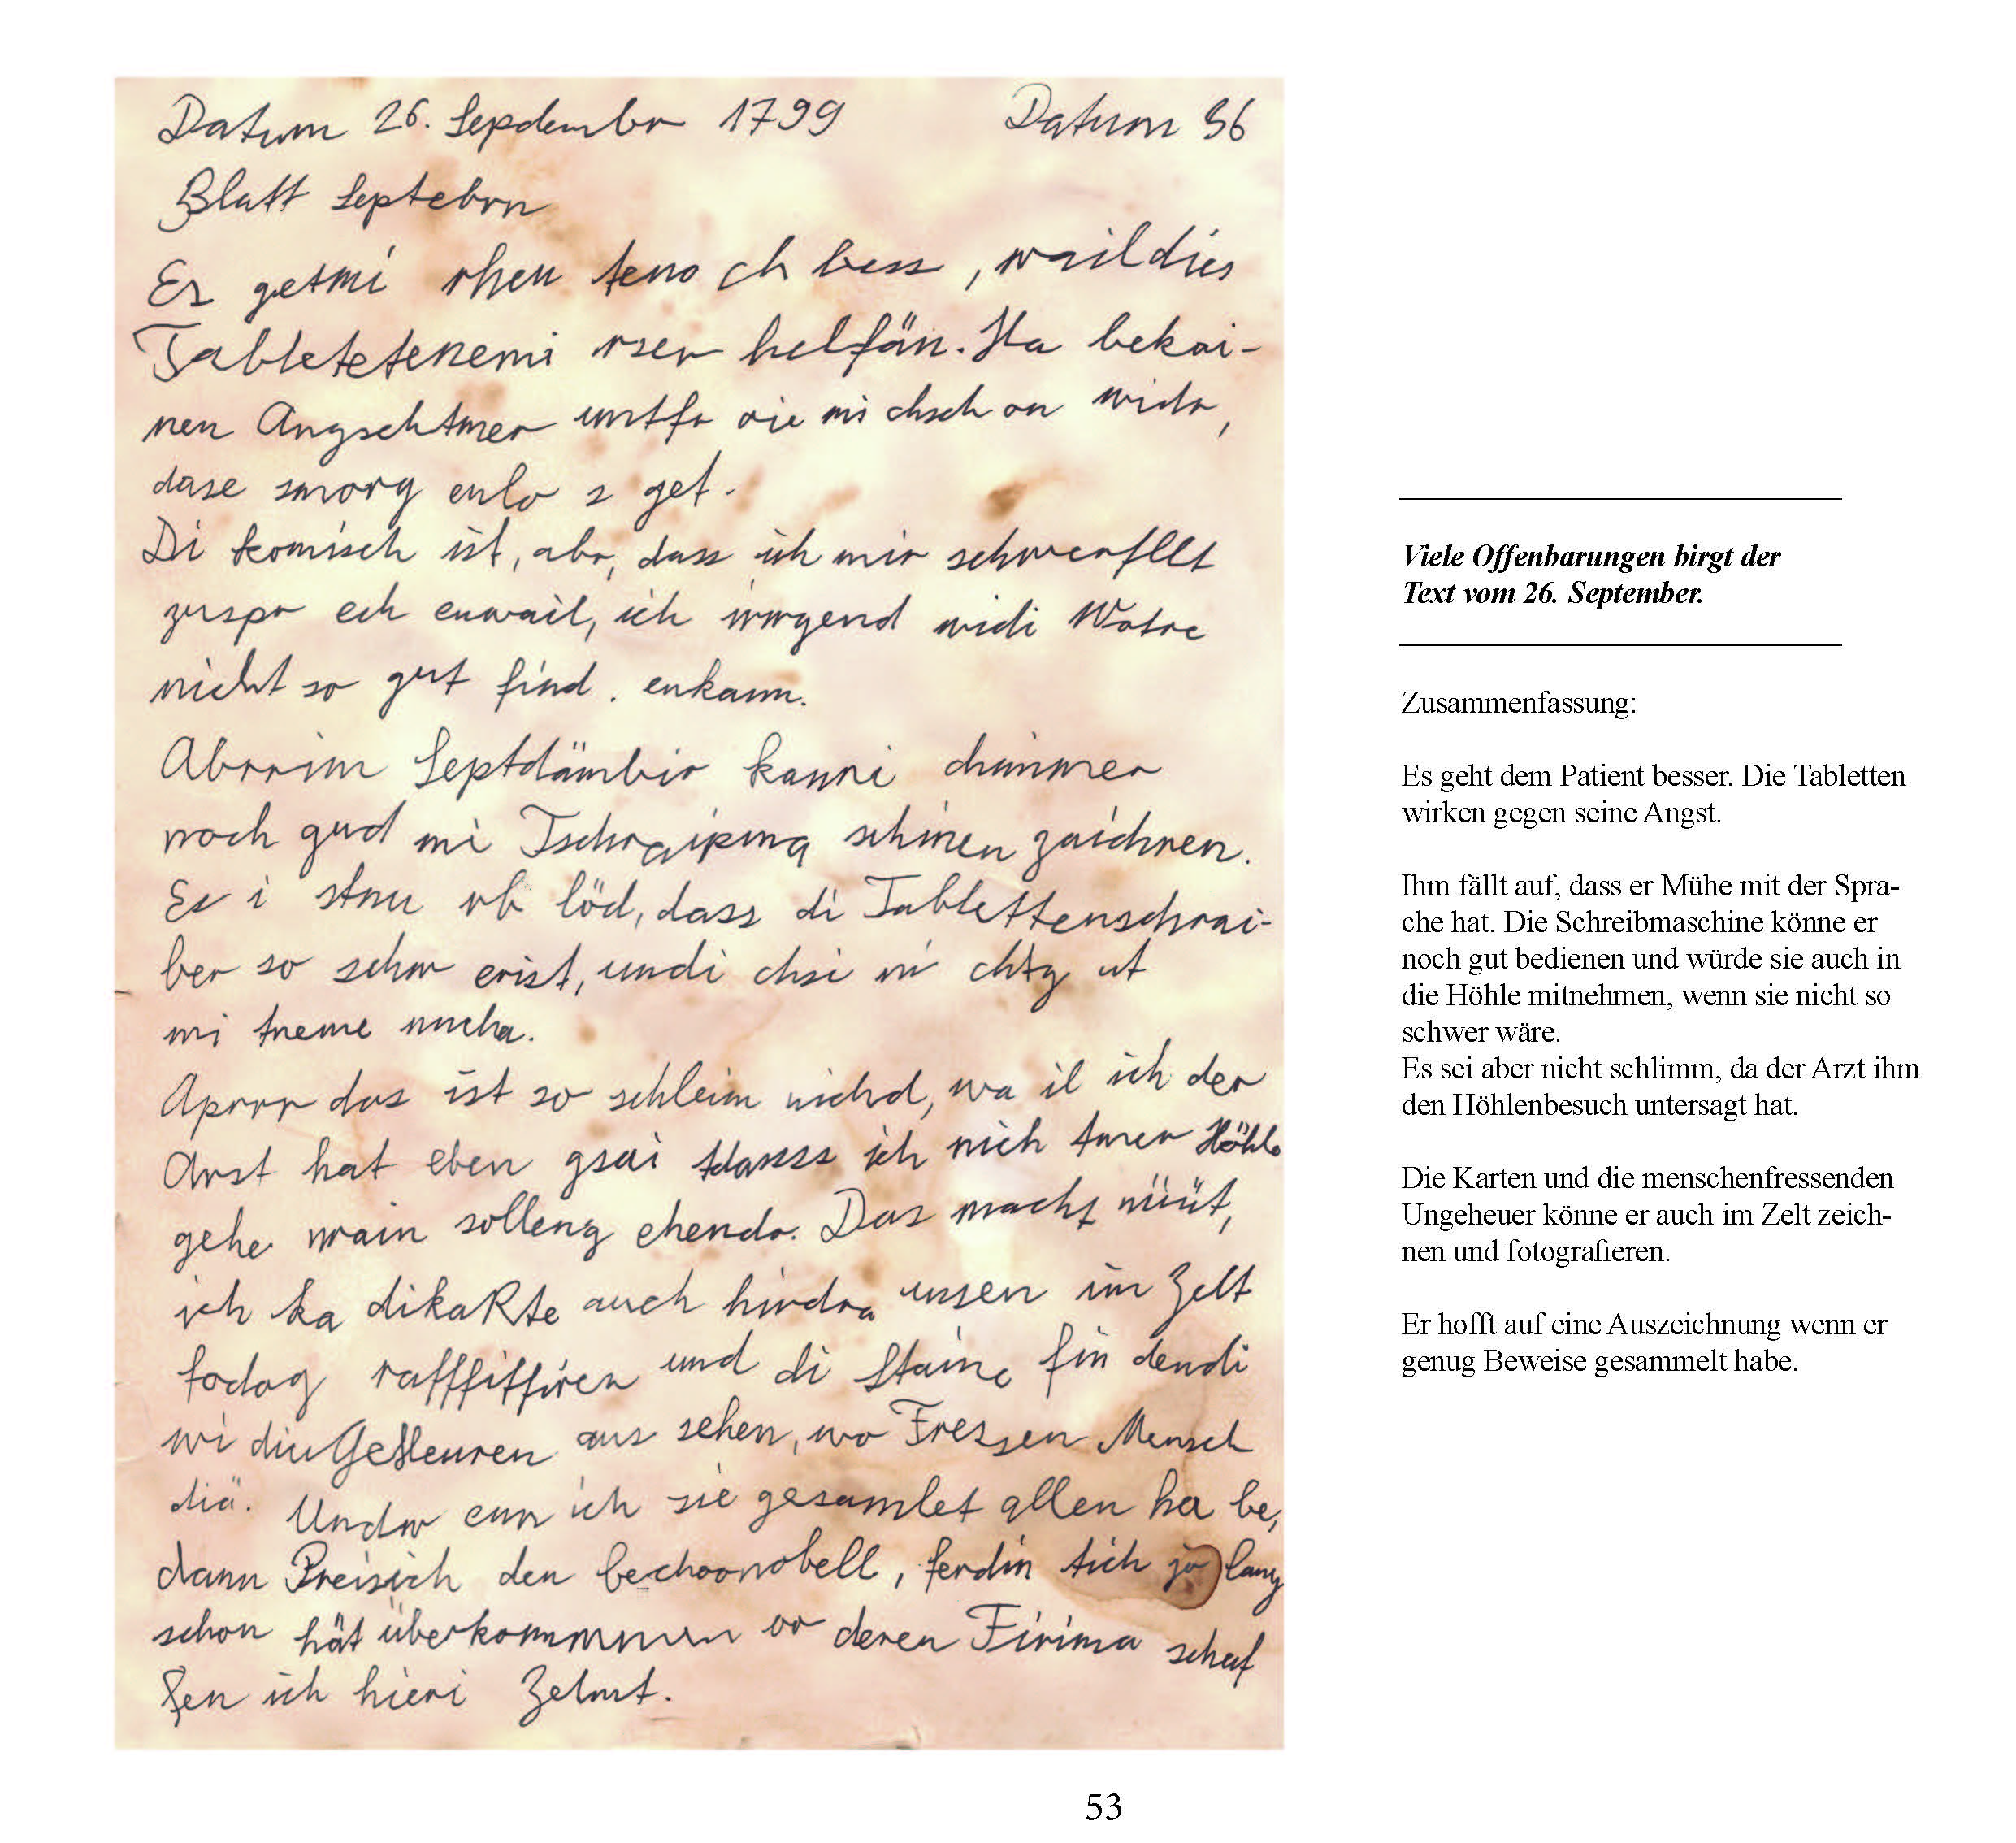 Datum 26. Sepdembr 1799 Datum 96
Blatt Septebrn
Es getmi rheu teno ch bess, waildies
Tabletetenemi rser helfän. Ha bekai-
nen Angschtmer untfr oie mi chsch on widr,
dase smorg enlo s get.
Di komisch ist, abr, dass ich mir schwerfllt
zuspr ech enwail, ich irrgend widi Wotre
nicht so gut find. enkann.
Abrrim Septdämbir kanni chimmer
noch gud mi Tschraipma schinen zaichnen.
Es i stnu rb löd, dass di Tablettenschrai-
ber so schw erist, undi chsi ni chtg ut
mi tneme nncha.
Aprrr das ist so schleim nichd, wa il ich der
Arst hat eben gsai tdassss ich nich tmer Höhle
gehe wrain solleng ehendr. Das macht nüüt,
ich ka dikaRte auch hindra unsen im Zelt
fodog rafffiffiren und di Staine fin dendi
wi diuGeHeuren aus sehen, wo Fressen Mensch
diä. Undw enn ich sie gesamlet allen ha be,
dann Preisich den bechoonobell, ferdin tich jo lang
schon hät überkommmnen vor deren Firima schaf
fen ich hieri Zelnst.
Viele Offenbarungen birgt der
Text vom 26. September.
Zusammenfassung:
Es geht dem Patient besser. Die Tabletten
wirken gegen seine Angst.
Ihm fällt auf, dass er Mühe mit der Spra-
che hat. Die Schreibmaschine könne er
noch gut bedienen und würde sie auch in
die Höhle mitnehmen, wenn sie nicht so
schwer wäre.
Es sei aber nicht schlimm, da der Arzt ihm
den Höhlenbesuch untersagt hat.
Die Karten und die menschenfressenden
Ungeheuer könne er auch im Zelt zeich-
nen und fotografieren.
Er hofft auf eine Auszeichnung wenn er
genug Beweise gesammelt habe.
53